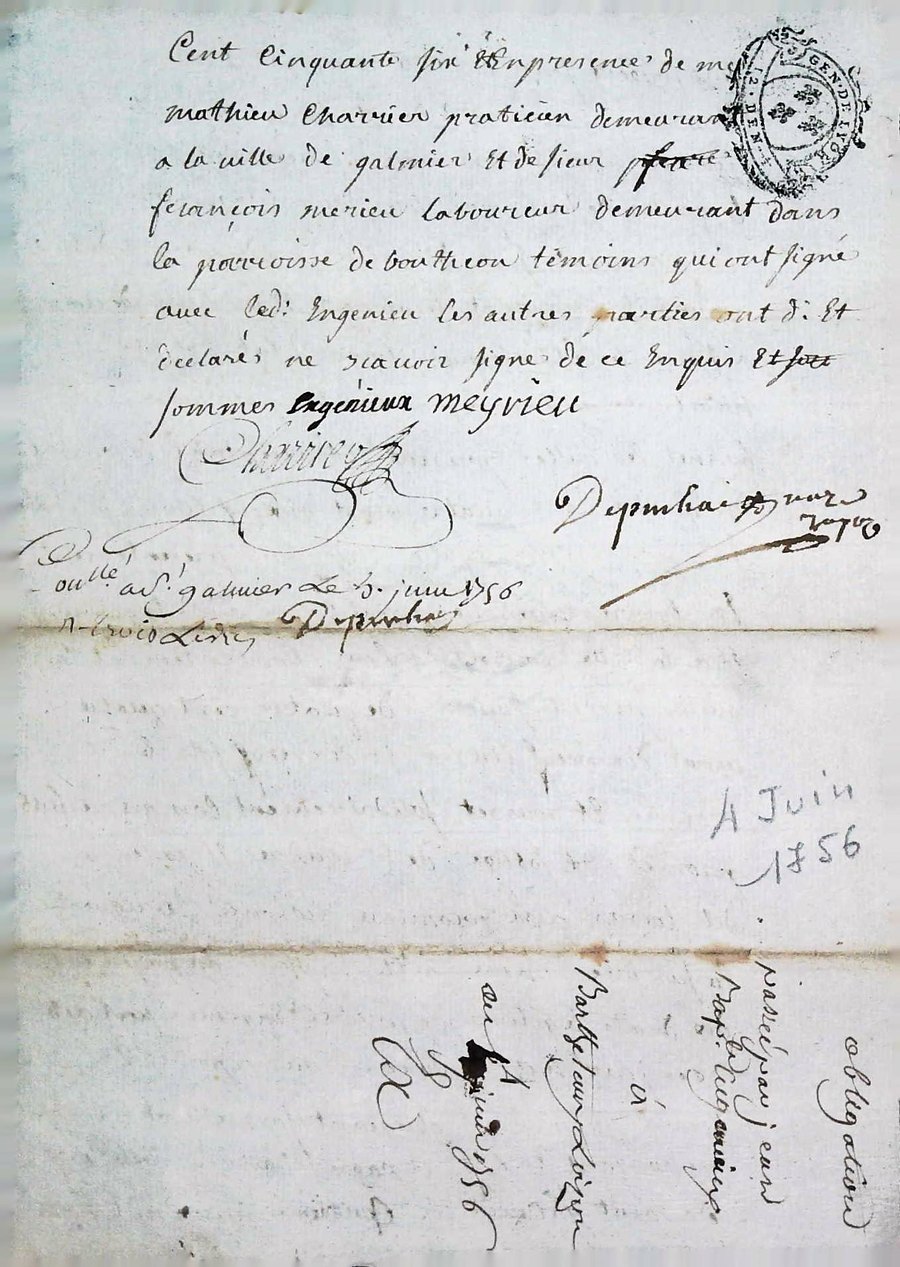 Cent Cinquante six Et Enpresence de me
mathieu Charrier praticien demeurant
a la ville de galmier Et de sieur
françois merieu laboureur demeurant dans
la parroisse de boutheon témoins qui ont signé
avec led: Engenieu les autres parties ont d: Et
declarés ne scavoir signe de ce Enquis Et
sommes Engénieux meyrieu
Charrier
GEN·DE·LYON
12·DEN·4
a St galmier Le 5. juin 1756
trois Livres
4 Juin
1756
obligation
passée par jean
Bapt Engenieux
à
Barthelemy
du 4
juin 1756